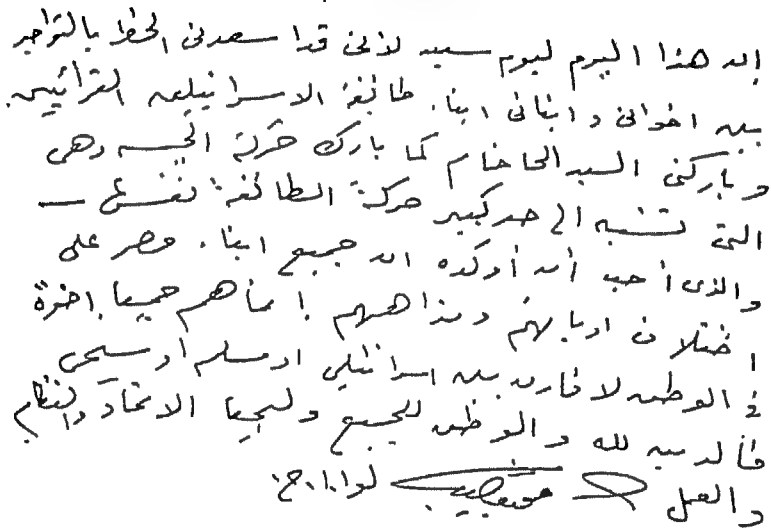 إن هذا اليوم ليوم سعيد لأنى قد أسعدنى الحظ بالتواجد
بين اخوانى وابنائى ابناء طائفة الاسرائيليين القرائيين
وباركنى السيد الحاخام كما بارك حركة الجيش وهى
التى تشبه الى حد كبير حركة الطائفة نفسها
والذى أحب أن أؤكده ان جميع ابناء مصر على
اختلاف اديانهم ومذاهبهم إنما هم جميعا إخوة
فى الوطن لا فارق بين اسرائيلى او مسلم او مسيحى
فالدين لله والوطن للجميع وليحيا الاتحاد والنظام
والعمل محمد نجيب لواء أ.ح.